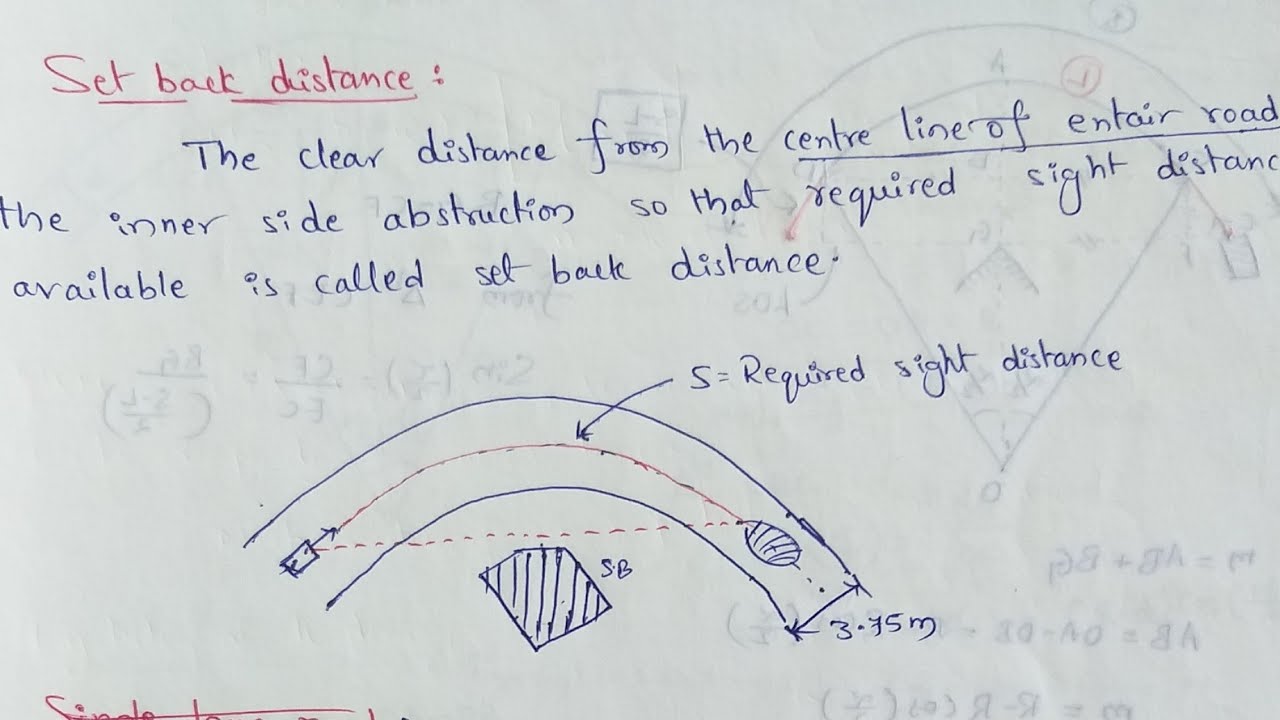 Set back distance :
The clear distance from the centre line of entair road
the inner side abstruction so that required sight distanc
available is called set back distance.
S = Required sight distance
S.B
3.75m